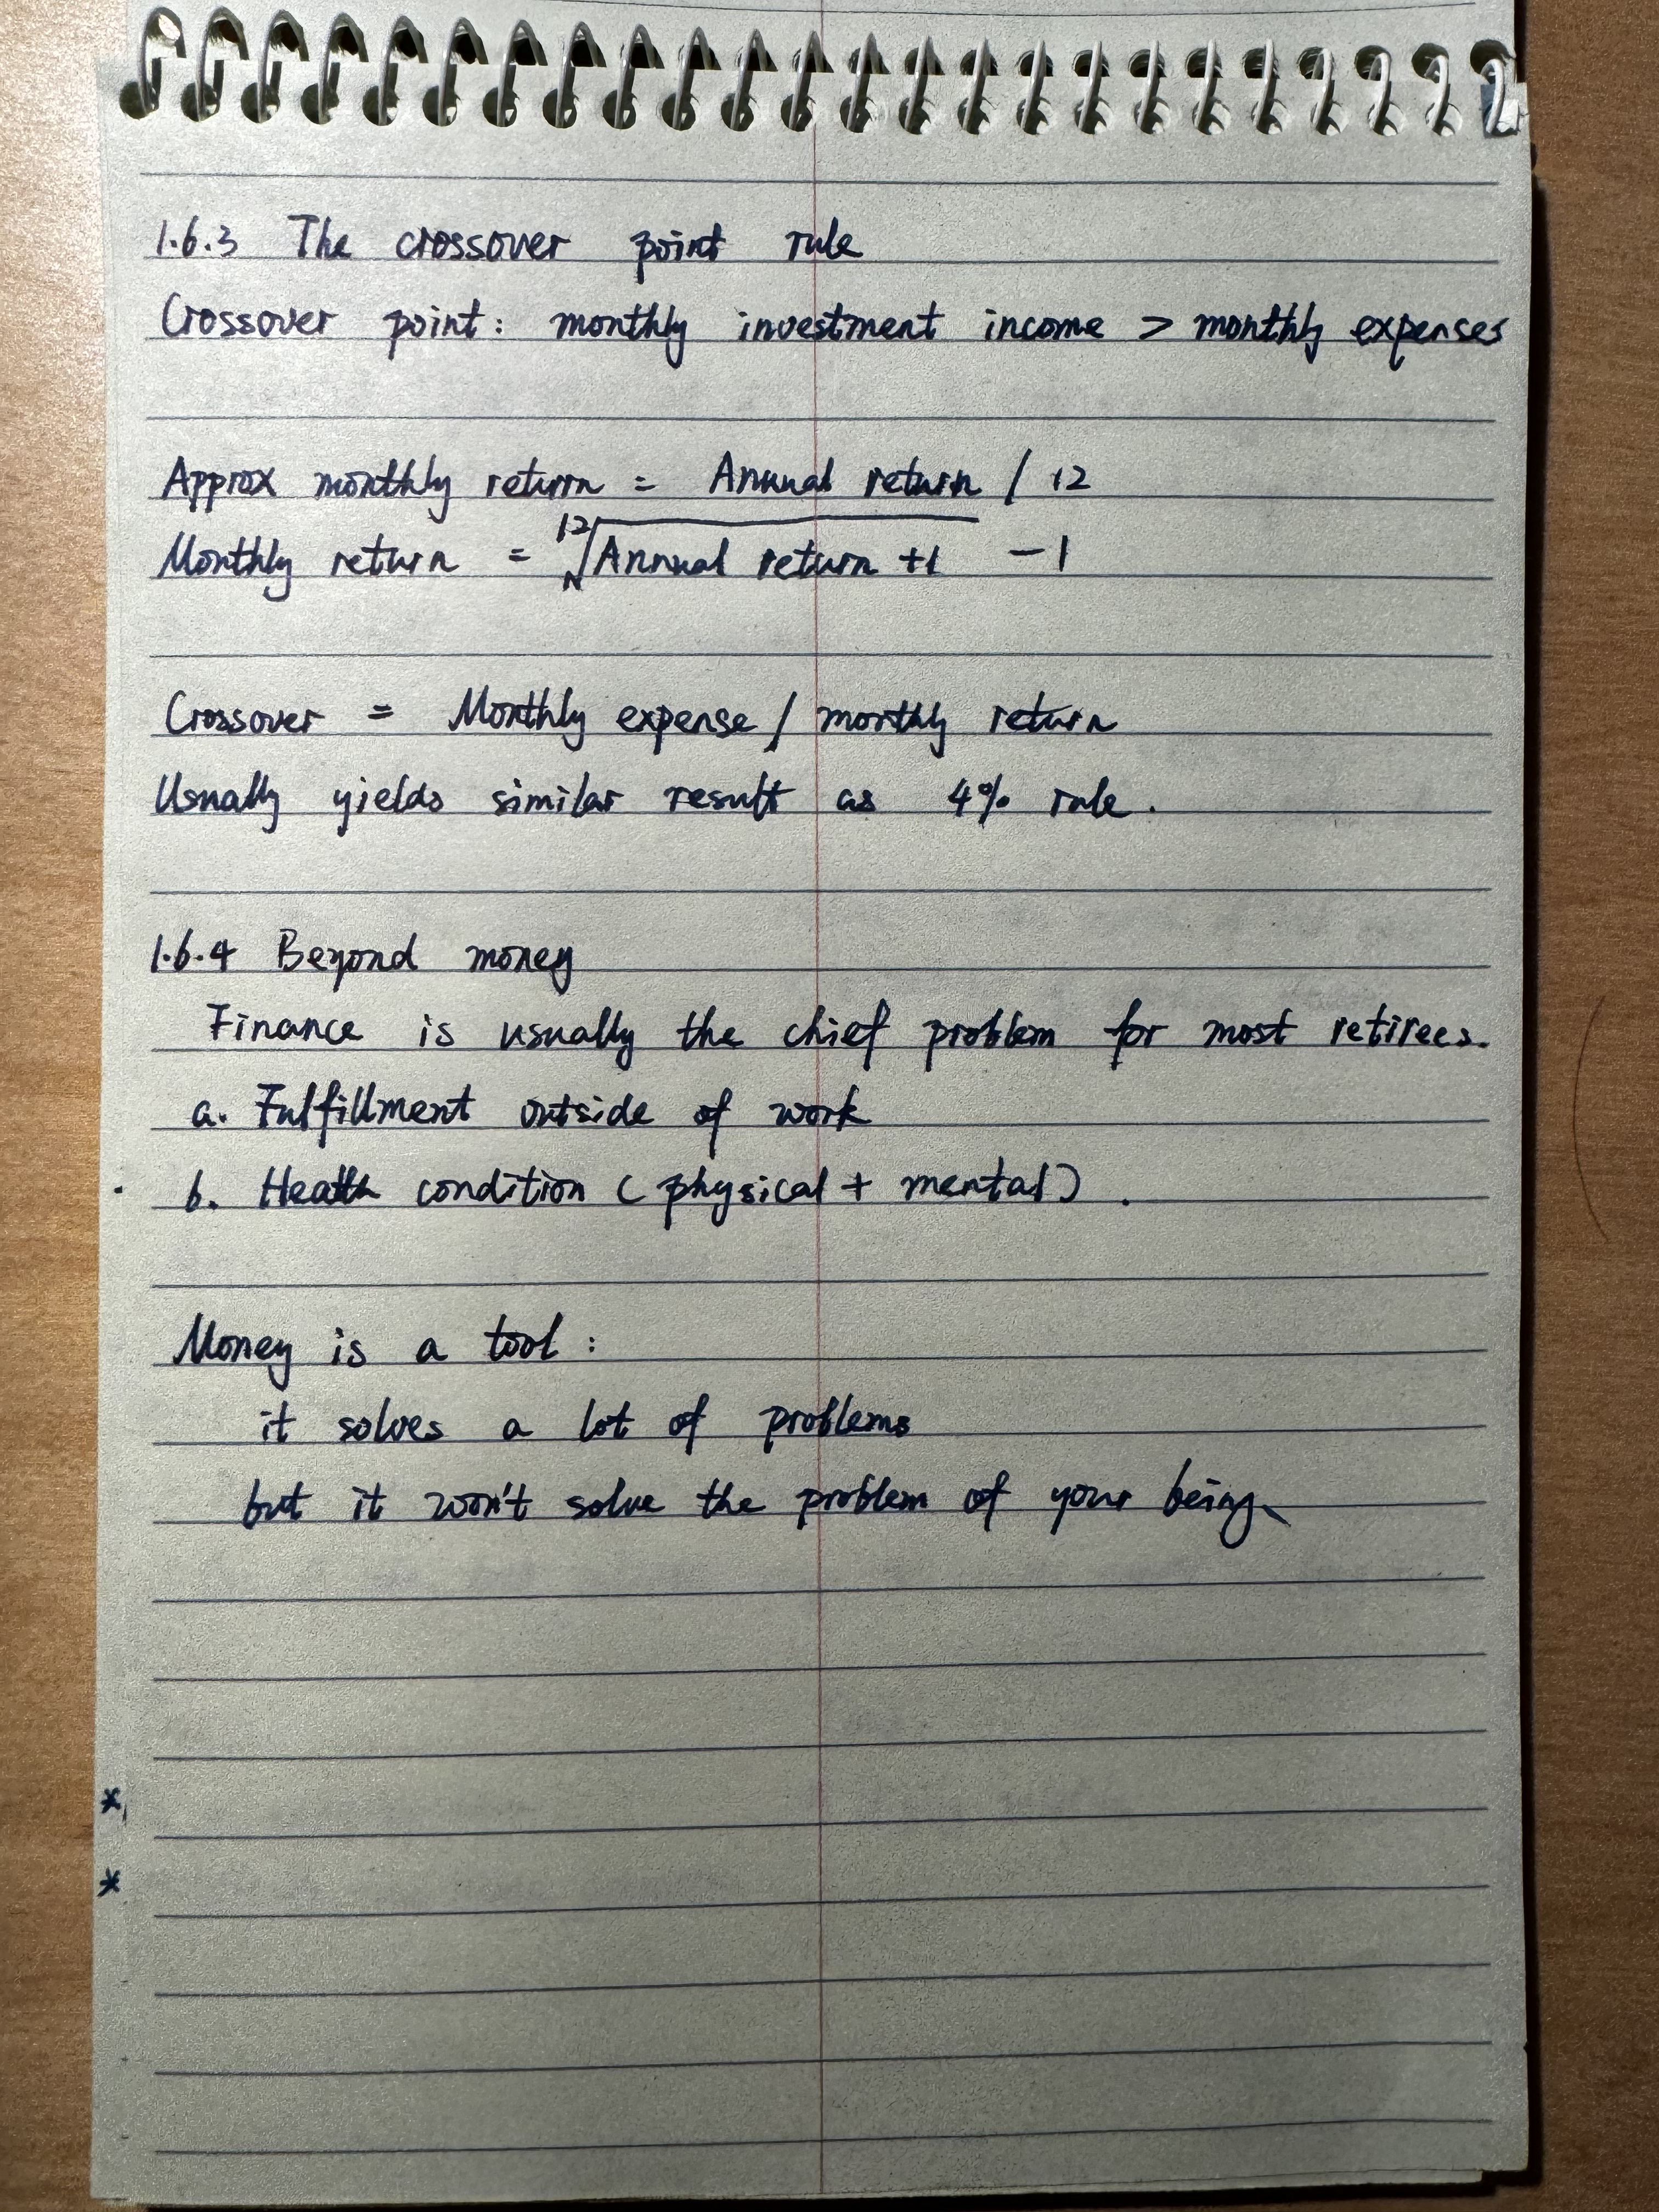 1.6.3 The crossover point rule
Crossover point: monthly investment income > monthly expenses
Approx monthly return = Annual return / 12
Monthly return = ¹²√(Annual return +1) - 1
Crossover = Monthly expense / monthly return
Usually yields similar result as 4% rule.
1.6.4 Beyond money
Finance is usually the chief problem for most retirees.
a. Fulfillment outside of work
b. Health condition (physical + mental).
Money is a tool:
it solves a lot of problems
but it won't solve the problem of your being.
*
*